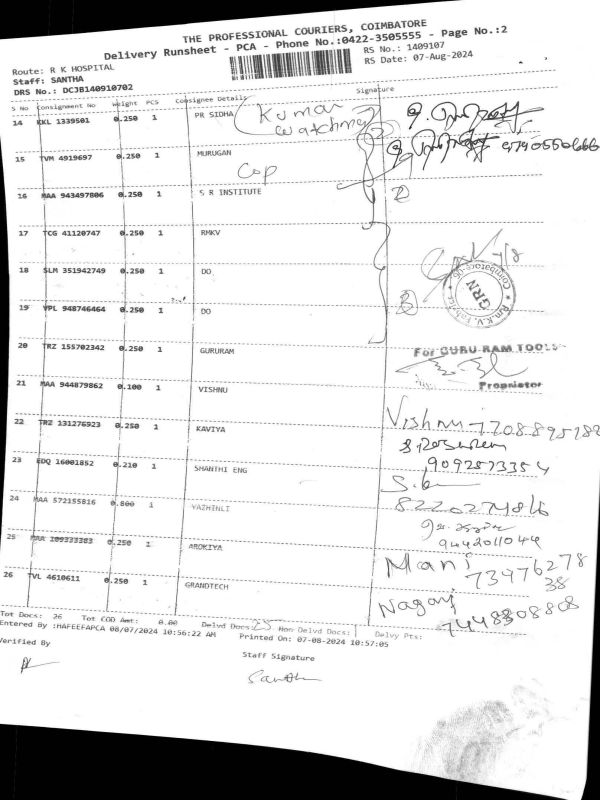 THE PROFESSIONAL COURIERS, COIMBATORE
Delivery Runsheet - PCA - Phone No.:0422-3505555 - Page No.:2
Route: R K HOSPITAL
RS No.: 1409107
Staff: SANTHA
RS Date: 07-Aug-2024
DRS No.: DCJB140910702
S No Consignment No Weight PCS Consignee Details Signature
14 KKL 1339501 0.250 1 PR SIDHA (Kumar
watching)
15 TVM 4919697 0.250 1 MURUGAN
Cop
16 MAA 943497806 0.250 1 S R INSTITUTE
17 TCG 41120747 0.250 1 RMKV
18 SLM 351942749 0.250 1 DO
19 VPL 948746464 0.250 1 DO
GRN
20 TRZ 155702342 0.250 1 GURURAM
For GURU RAM TOOLS
Proprietor
21 MAA 944879862 0.100 1 VISHNU
Vishnu 7708895188
22 TRZ 131276923 0.250 1 KAVIYA
9092573354
23 EDQ 16001852 0.210 1 SHANTHI ENG
24 MAA 572155816 0.800 1 YAZHINLI
8220274816
25 MAA 109333383 0.250 1 AROKIYA
9442011044
Mani
7397627838
26 TVL 4610611 0.250 1 GRANDTECH
Nagaraj
7448308808
Tot Docs: 26 Tot COD Amt: 0.00 Delvd Docs: 25 Non Delvd Docs: Delvy Pts:
Entered By :HAFEEFAPCA 08/07/2024 10:56:22 AM Printed On: 07-08-2024 10:57:05
Verified By
Staff Signature
Santha